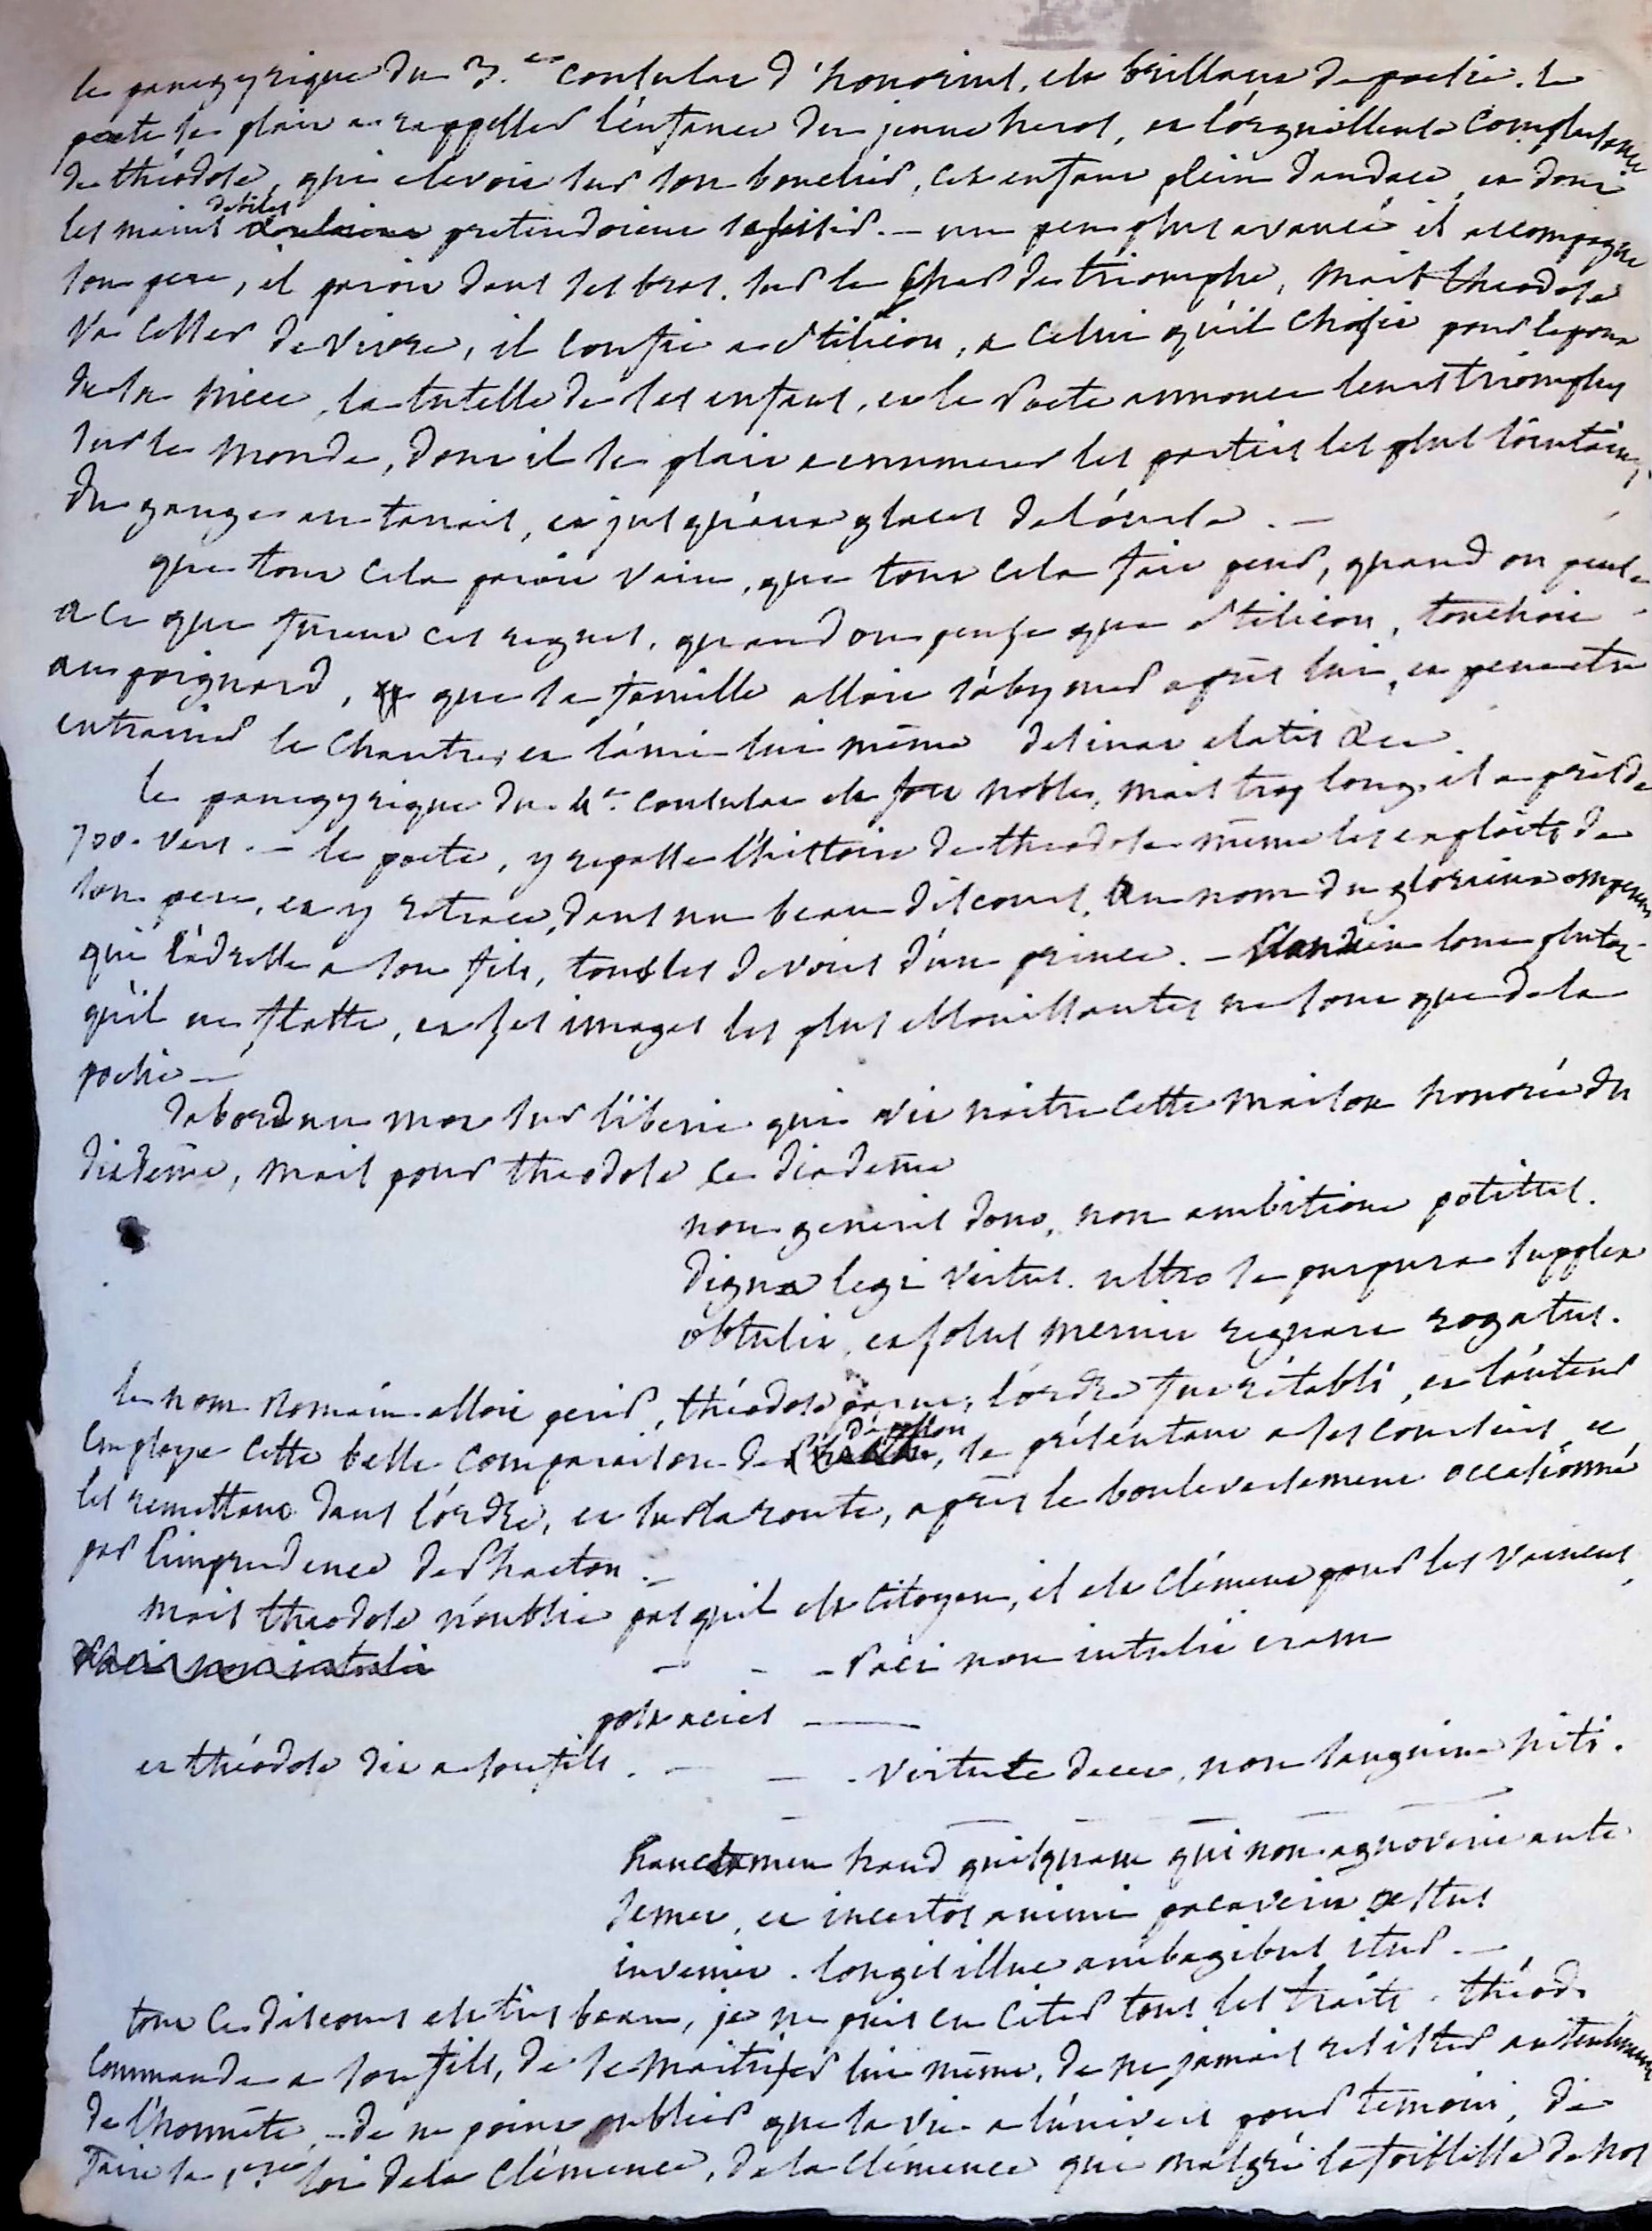 le panegyrique du 3.eme consulat d'honorius, est brillant de poesie. le
poete se plait a rappeller l'enfance du jeune heros, et l'orgueilleuse complaisance
de théodose, qui elevoit sur son bouclier, cet enfant plein d'audace, et dont
les mains debiles pretendoient le saisir. — un peu plus avancé il accompagne
son pere, il paroit dans ses bras, sur le char de triomphe, mais théodose
va cesser de vivre, il confie a Stilicon, a celui qu'il choisit pour l'epoux
de sa niece, la tutelle de ses enfans, et le Poete annonce leurs triomphes
sur le monde, dont il se plait a enumerer les parties les plus lointaines,
du gange au tanaïs, et jusqu'aux glaces de l'ourse. —
que tout cela paroit vain, que tout cela fait peur, quand on pense
a ce que furent ces regnes, quand on pense que Stilicon, touchoit
au poignard, que sa famille alloit s'abymer après lui, et peut etre
entrainer le chantre, et l'ami lui même desinat elatis &c.
le panegyrique du 4e consulat est fort noble, mais trop long, il a près de
700. vers. — le poete, y repasse l'histoire de théodose même les exploits de
son pere, et y retrace, dans un beau discours, au nom du glorieux empereur
qui l'adresse a son fils, tous les devoirs d'un prince. — Claudien loue plutot
qu'il ne flatte, et ses images les plus eblouissantes ne sont que de la
poesie —
d'abord un mot sur l'iberie qui vit naitre cette maison honorée du
diadême, mais pour théodose ce diadême
non generis dono, non ambitione potitus.
digna legi virtus. ultro se purpura supplex
obtulit, et solus meruit regnare rogatus.
le nom Romain alloit perir, théodose parut, l'ordre fut rétabli, et l'auteur
employe cette belle comparaison d'apollon, se présentant a ses coursiers, et
les remettant dans l'ordre, et sur la route, après le bouleversement occasionné
par l'imprudence de Phaeton. —
mais théodose n'oublie pas qu'il est citoyen, il est clément pour les vaincus,
Paci non intulit - - - Paci non intulit iram
post acies —
et théodose dit a son fils. - - - virtute decet, non sanguine niti.
hanc tamen haud quisquam qui non agnoverit ante
semet, et incertos animi pacaverit aestus
inveniet. longis illuc ambagibus itur. —
tout ce discours est très beau, je ne puis en citer tous les traits. théod.
commande a son fils, de se maitriser lui même, de ne jamais resister au sentiment
de l'honnête, — de ne point oublier que sa vie a l'univers pour temoin, de
faire sa 1ere loi de la clémence, de la clémence qui malgré la foiblesse de nos